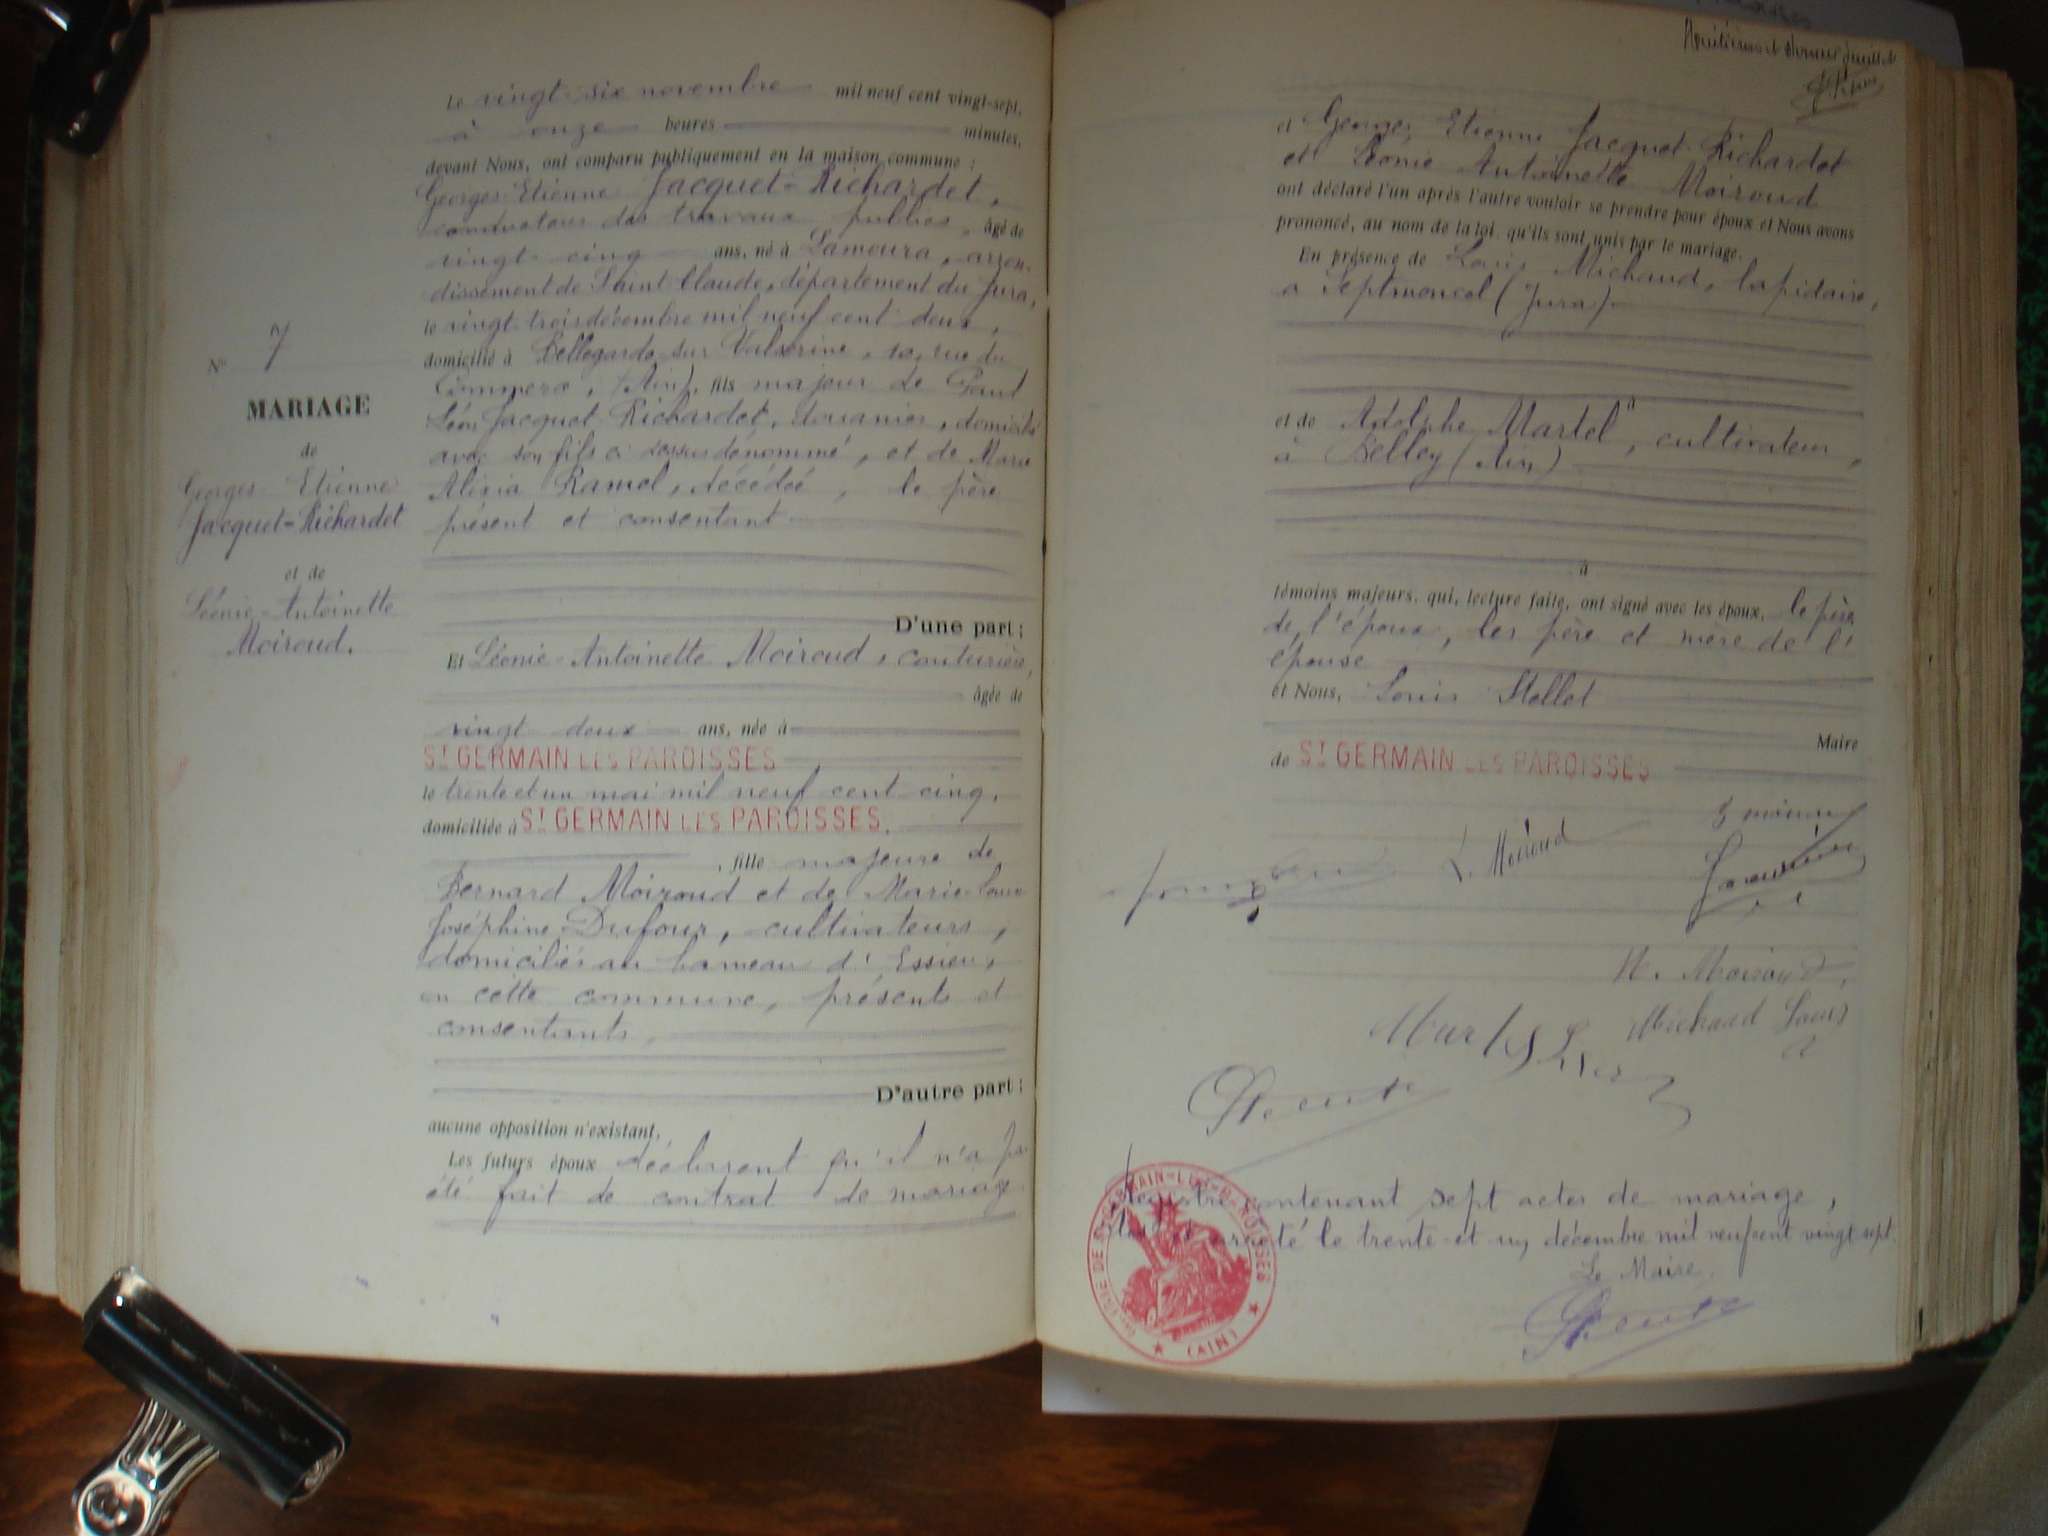 N° 7
MARIAGE
de
Georges Etienne
Jacquet-Richardet
et de
Léonie-Antoinette
Moiroud.
Le vingt-six novembre mil neuf cent vingt-sept,
à onze heures minutes,
devant Nous, ont comparu publiquement en la maison commune :
Georges Etienne Jacquet-Richardet,
conducteur des travaux publics, âgé de
vingt-cinq ans, né à Lamoura, arron-
dissement de Saint Claude, département du Jura,
le vingt-trois décembre mil neuf cent deux,
domicilié à Bellegarde sur Valserine, 10, rue du
Commerce, (Ain), fils majeur de Paul
Léon Jacquet-Richardet, douanier, domicilié
avec son fils ci dessus dénommé, et de Marie
Alixia Ramel, décédée, le père
présent et consentant
D'une part ;
Et Léonie-Antoinette Moiroud, couturière,
âgée de
vingt deux ans, née à
ST GERMAIN LES PAROISSES
le trente et un mai mil neuf cent cinq,
domiciliée à ST GERMAIN LES PAROISSES.
, fille majeure de
Bernard Moiroud et de Marie-Louise
Joséphine Dufour, cultivateurs,
domiciliés au hameau d'Essieu,
en cette commune, présents et
consentants.
D'autre part ;
aucune opposition n'existant,
Les futurs époux déclarent qu'il n'a pas
été fait de contrat de mariage
et dernier feuillet
et Georges Etienne Jacquet-Richardet
et Léonie Antoinette Moiroud
ont déclaré l'un après l'autre vouloir se prendre pour époux et Nous avons
prononcé, au nom de la loi, qu'ils sont unis par le mariage.
En présence de Louis Michaud, lapidaire,
à Septmoncel (Jura)
et de Adolphe Martel, cultivateur,
à Belley (Ain)
à
témoins majeurs, qui, lecture faite, ont signé avec les époux, le père
de l'époux, les père et mère de l'
épouse
et Nous, Louis
Maire
de ST GERMAIN LES PAROISSES
L. Moiroud
Moiroud
Michaud Louis
Registre contenant sept actes de mariage,
arrêté le trente et un décembre mil neuf cent vingt sept
Le Maire
MAIRIE DE ST GERMAIN-LES-PAROISSES
(AIN)